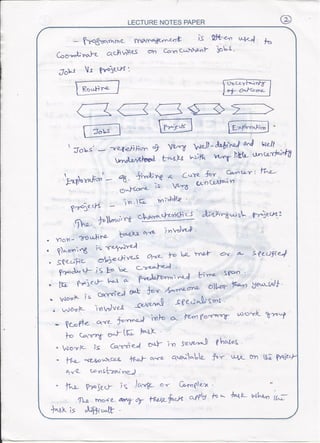 LECTURE NOTES PAPER
2
- Programme management is often used to
Coordinate activities on Concurrent jobs.
Jobs Vs Projects:
Routine
Uncertainty of outcome
Jobs
Projects
Exploration
'Jobs' - repetition of very well-defined and well
understood tasks with very little uncertainty
'Exploration' - eg. finding a cure for cancer: the
outcome is very uncertain
projects - in the middle
The following characteristics distinguish projects:
• non-routine tasks are involved.
• planning is required
• specific objectives are to be met or a specified
product is to be created.
• the project has a predetermined time span.
• work is carried out for someone other than yourself.
• work involves several specialisms
• people are formed into a temporary work group
to carry out the task.
• work is carried out in several phases
• the resources that are available for use on the project
are constrained
• the project is large or complex.
The more any of these factors apply to a task when the
task is difficult.